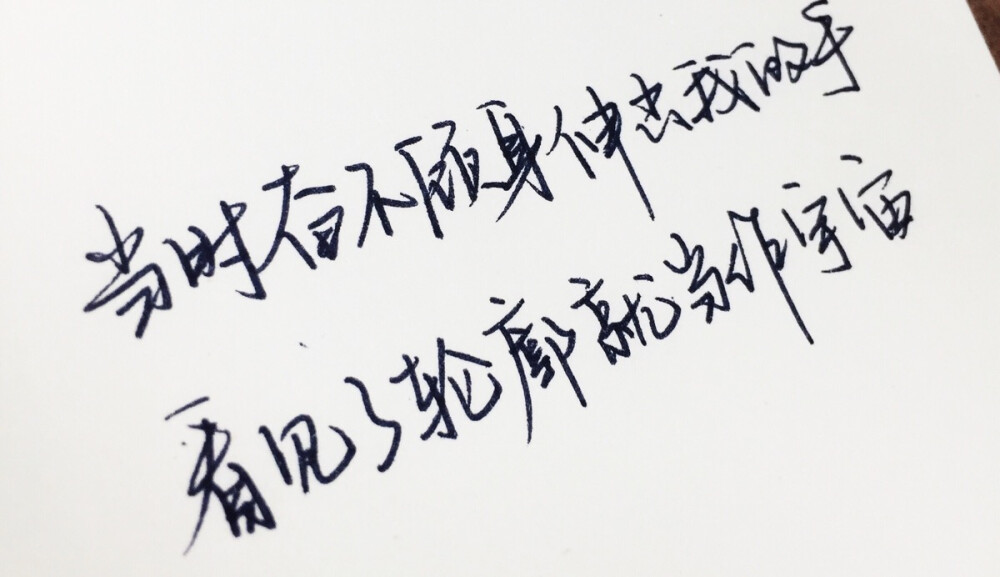 当时奋不顾身伸去我的手
看见了轮廓就当作宇宙